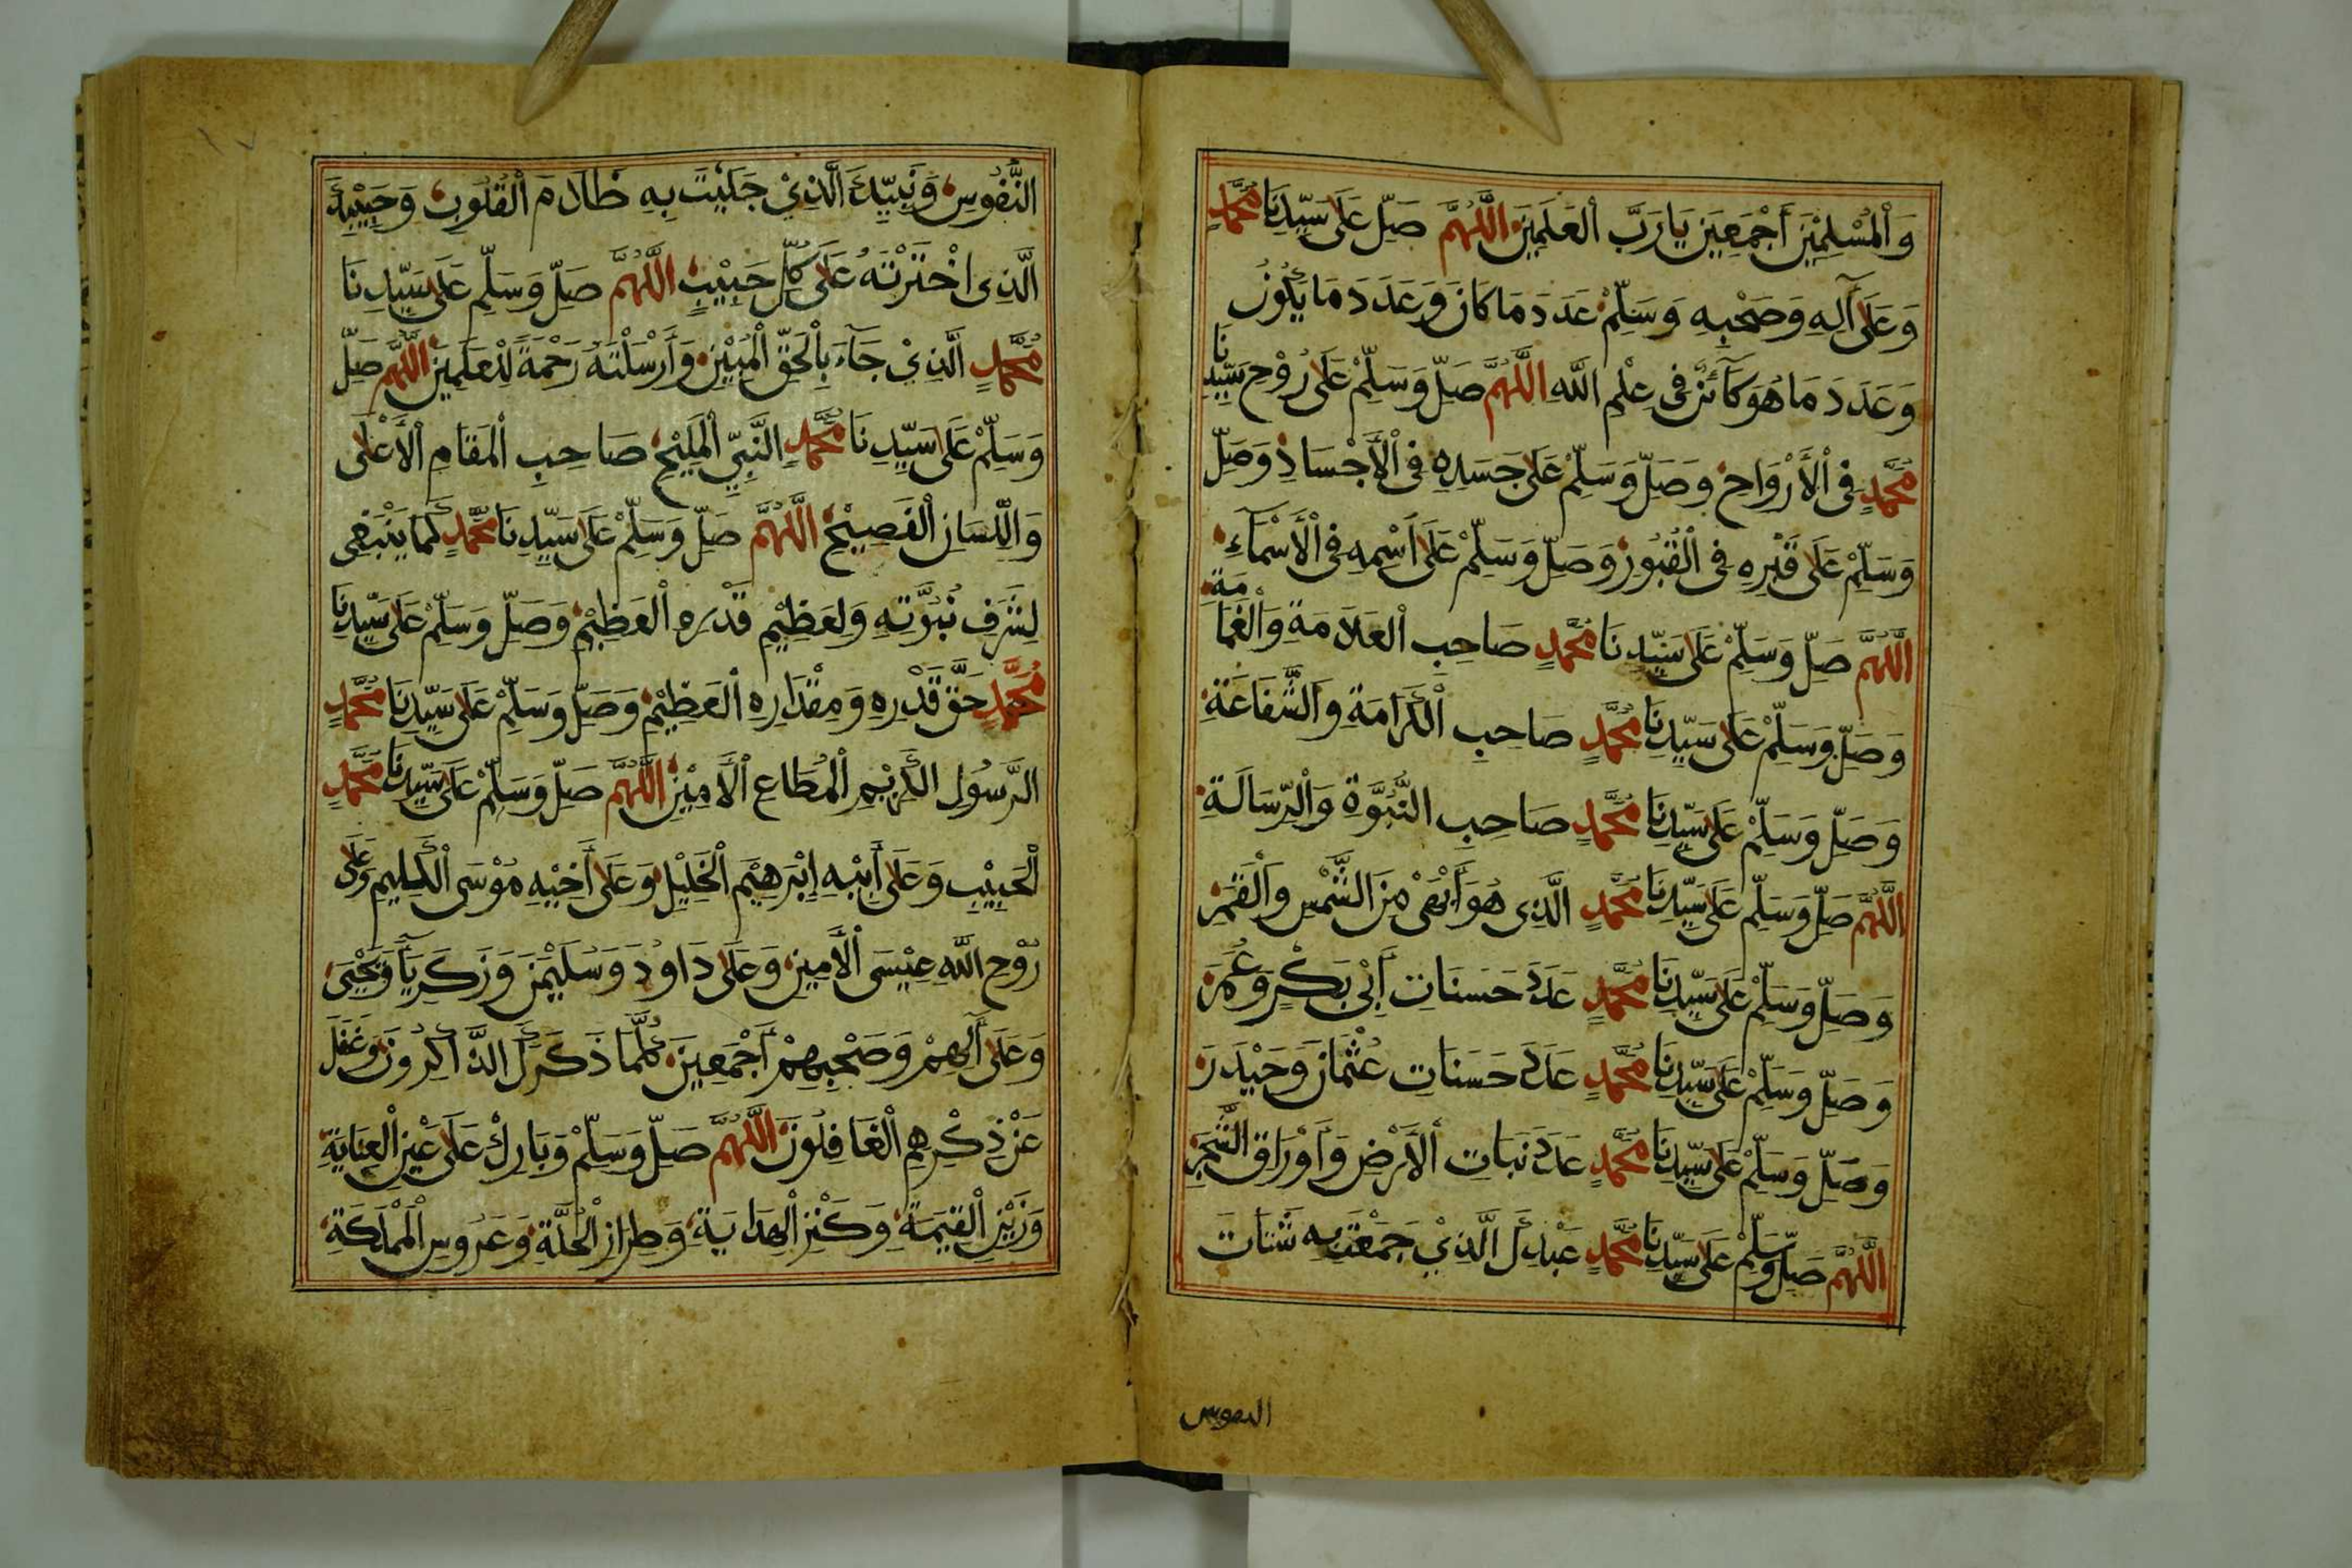 وَالْمُسْلِمِيْنَ أَجْمَعِيْنَ يَا رَبَّ الْعَلَمِيْنَ اللّٰهُمَّ صَلِّ عَلَى سَيِّدِنَا مُحَمَّدٍ
وَعَلَى آلِهِ وَصَحْبِهِ وَسَلِّمْ عَدَدَ مَا كَانَ وَعَدَدَ مَا يَكُوْنُ
وَعَدَدَ مَا هُوَ كَآئِنٌ فِى عِلْمِ اللّٰهِ اللّٰهُمَّ صَلِّ وَسَلِّمْ عَلَى رُوْحِ سَيِّدِنَا
مُحَمَّدٍ فِى الْأَرْوَاحِ وَصَلِّ وَسَلِّمْ عَلَى جَسَدِهِ فِى الْأَجْسَادِ وَصَلِّ
وَسَلِّمْ عَلَى قَبْرِهِ فِى الْقُبُوْرِ وَصَلِّ وَسَلِّمْ عَلَى اسْمِهِ فِى الْأَسْمَآءِ
اللّٰهُمَّ صَلِّ وَسَلِّمْ عَلَى سَيِّدِنَا مُحَمَّدٍ صَاحِبِ الْعَلَامَةِ وَالْغَمَامَةِ
وَصَلِّ وَسَلِّمْ عَلَى سَيِّدِنَا مُحَمَّدٍ صَاحِبِ الْكَرَامَةِ وَالشَّفَاعَةِ
وَصَلِّ وَسَلِّمْ عَلَى سَيِّدِنَا مُحَمَّدٍ صَاحِبِ النُّبُوَّةِ وَالرِّسَالَةِ
اللّٰهُمَّ صَلِّ وَسَلِّمْ عَلَى سَيِّدِنَا مُحَمَّدٍ الَّذِى هُوَ أَبْهَى مِنَ الشَّمْسِ وَالْقَمَرِ
وَصَلِّ وَسَلِّمْ عَلَى سَيِّدِنَا مُحَمَّدٍ عَدَدَ حَسَنَاتِ أَبِى بَكْرٍ وَعُمَرَ
وَصَلِّ وَسَلِّمْ عَلَى سَيِّدِنَا مُحَمَّدٍ عَدَدَ حَسَنَاتِ عُثْمَانَ وَحَيْدَرَ
وَصَلِّ وَسَلِّمْ عَلَى سَيِّدِنَا مُحَمَّدٍ عَدَدَ نَبَاتِ الْأَرْضِ وَأَوْرَاقِ الشَّجَرِ
اللّٰهُمَّ صَلِّ وَسَلِّمْ عَلَى سَيِّدِنَا مُحَمَّدٍ عَبْدِكَ الَّذِيْ جَمَعْتَ بِهِ شَتَاتَ
النفوس
النُّفُوْسِ وَنَبِيِّكَ الَّذِيْ جَلَيْتَ بِهِ ظَلَامَ الْقُلُوْبِ وَحَبِيْبِكَ
الَّذِى اخْتَرْتَهُ عَلَى كُلِّ حَبِيْبٍ اللّٰهُمَّ صَلِّ وَسَلِّمْ عَلَى سَيِّدِنَا
مُحَمَّدٍ الَّذِيْ جَآءَ بِالْحَقِّ الْمُبِيْنِ وَأَرْسَلْتَهُ رَحْمَةً لِلْعَلَمِيْنَ اللّٰهُمَّ صَلِّ
وَسَلِّمْ عَلَى سَيِّدِنَا مُحَمَّدٍ النَّبِيِّ الْمَلِيْحِ صَاحِبِ الْمَقَامِ الْأَعْلَى
وَاللِّسَانِ الْفَصِيْحِ اللّٰهُمَّ صَلِّ وَسَلِّمْ عَلَى سَيِّدِنَا مُحَمَّدٍ كَمَا يَنْبَغِى
لِشَرَفِ نُبُوَّتِهِ وَلِعَظِيْمِ قَدْرِهِ الْعَظِيْمِ وَصَلِّ وَسَلِّمْ عَلَى سَيِّدِنَا
مُحَمَّدٍ حَقَّ قَدْرِهِ وَمِقْدَارِهِ الْعَظِيْمِ وَصَلِّ وَسَلِّمْ عَلَى سَيِّدِنَا مُحَمَّدٍ
الرَّسُوْلِ الْكَرِيْمِ الْمُطَاعِ الْأَمِيْنِ اللّٰهُمَّ صَلِّ وَسَلِّمْ عَلَى سَيِّدِنَا مُحَمَّدٍ
الْحَبِيْبِ وَعَلَى أَبِيْهِ إِبْرَهِيْمَ الْخَلِيْلِ وَعَلَى أَخِيْهِ مُوْسَى الْكَلِيْمِ وَعَلَى
رُوْحِ اللّٰهِ عِيْسَى الْأَمِيْنِ وَعَلَى دَاوُدَ وَسُلَيْمٰنَ وَزَكَرِيَّآ وَيَحْيَى
وَعَلَى آلِهِمْ وَصَحْبِهِمْ أَجْمَعِيْنَ كُلَّمَا ذَكَرَكَ الذَّاكِرُوْنَ وَغَفَلَ
عَنْ ذِكْرِهِمِ الْغَافِلُوْنَ اللّٰهُمَّ صَلِّ وَسَلِّمْ وَبَارِكْ عَلَى عَيْنِ الْعِنَايَةِ
وَزَيْنِ الْقِيٰمَةِ وَكَنْزِ الْهِدَايَةِ وَطِرَازِ الْحُلَّةِ وَعَرُوْسِ الْمَمْلَكَةِ